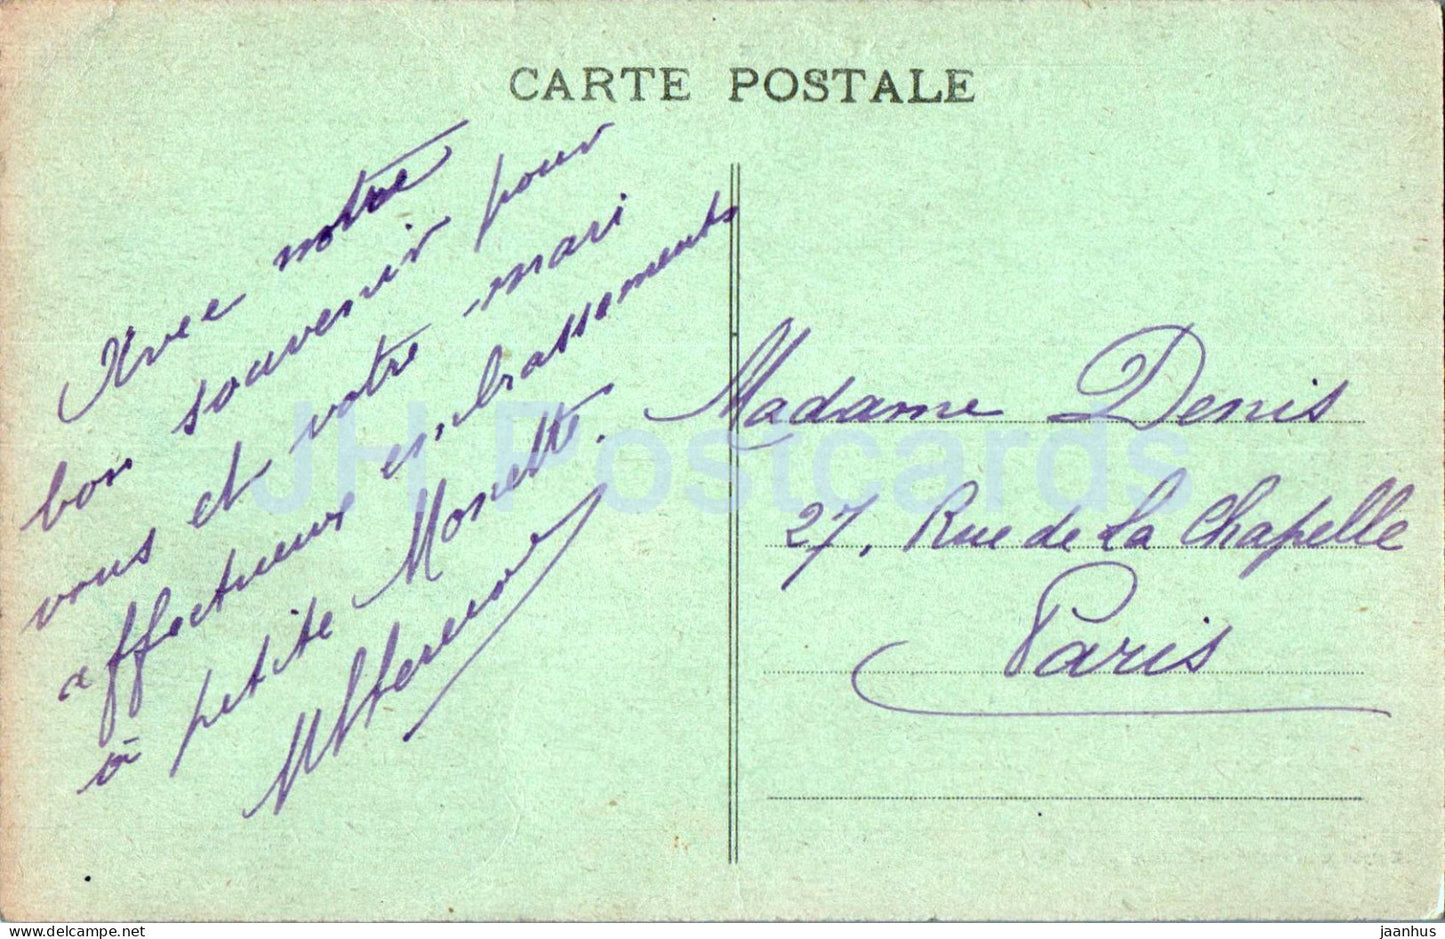 CARTE POSTALE
Avec notre
bon souvenir pour
vous et votre mari
affectueux embrassements
à petite Monette.
Madame Denis
27, Rue de La Chapelle
Paris
JH Postcards
jaanhus